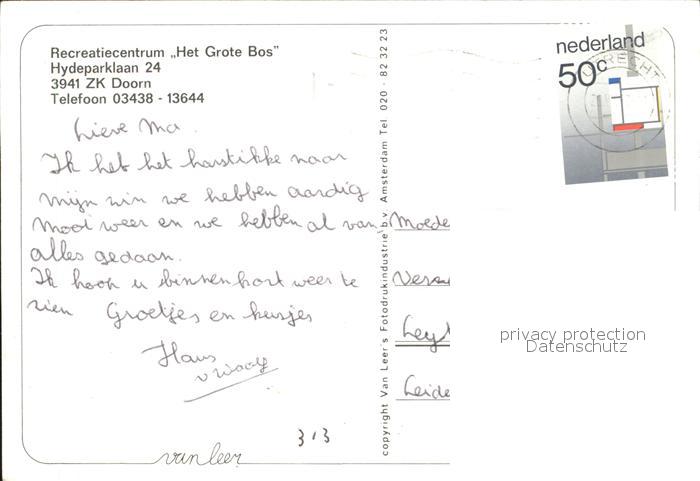 Recreatiecentrum „Het Grote Bos"
Hydeparklaan 24
3941 ZK Doorn
Telefoon 03438 - 13644
Lieve Ma.
Ik heb het harstikke naar
mijn zin we hebben aardig
mooi weer en we hebben al van
alles gedaan.
Ik hoop u binnenkort weer te
zien Groetjes en kusjes
Hans
313
van leer
copyright Van Leer's Fotodrukindustrie b.v. Amsterdam Tel. 020 - 82 32 23
nederland
50c
UTRECHT
Moede
Leide
privacy protection
Datenschutz